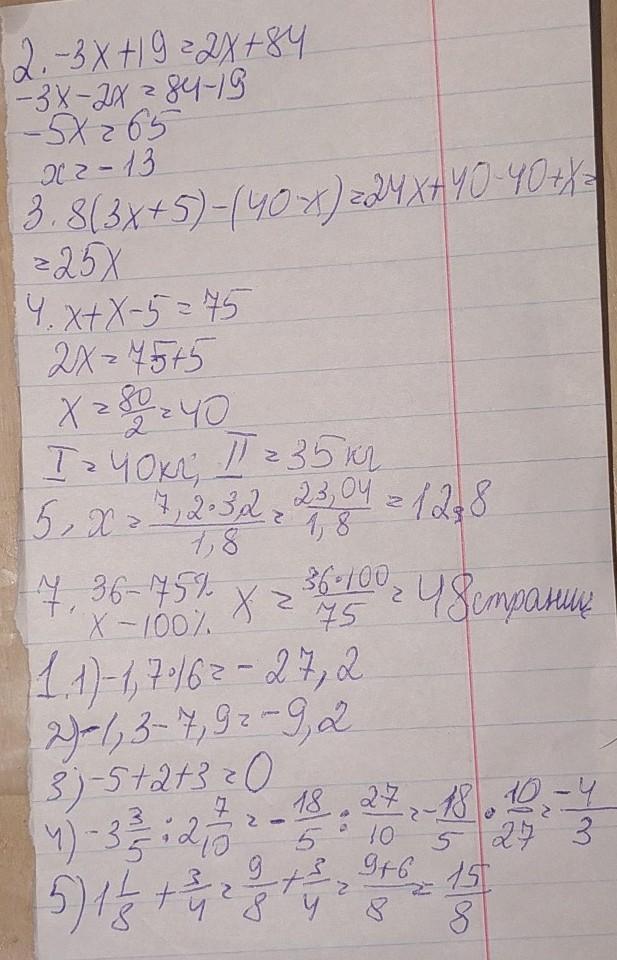 2. -3x+19=2x+84
-3x-2x=84-19
-5x=65
x=-13
3. 8(3x+5)-(40-x)=24x+40-40+x=
=25x
4. x+x-5=75
2x=75+5
x=80/2=40
I=40кг; II=35кг
5. x=7,2·3,2/1,8=23,04/1,8=12,8
7. 36-75% x=36·100/75=48страниц
x-100%
1. 1)-1,7·16=-27,2
2)-1,3-7,9=-9,2
3)-5+2+3=0
4)-3 3/5:2 7/10=-18/5:27/10=-18/5·10/27=-4/3
5)1 1/8+3/4=9/8+3/4=9+6/8=15/8